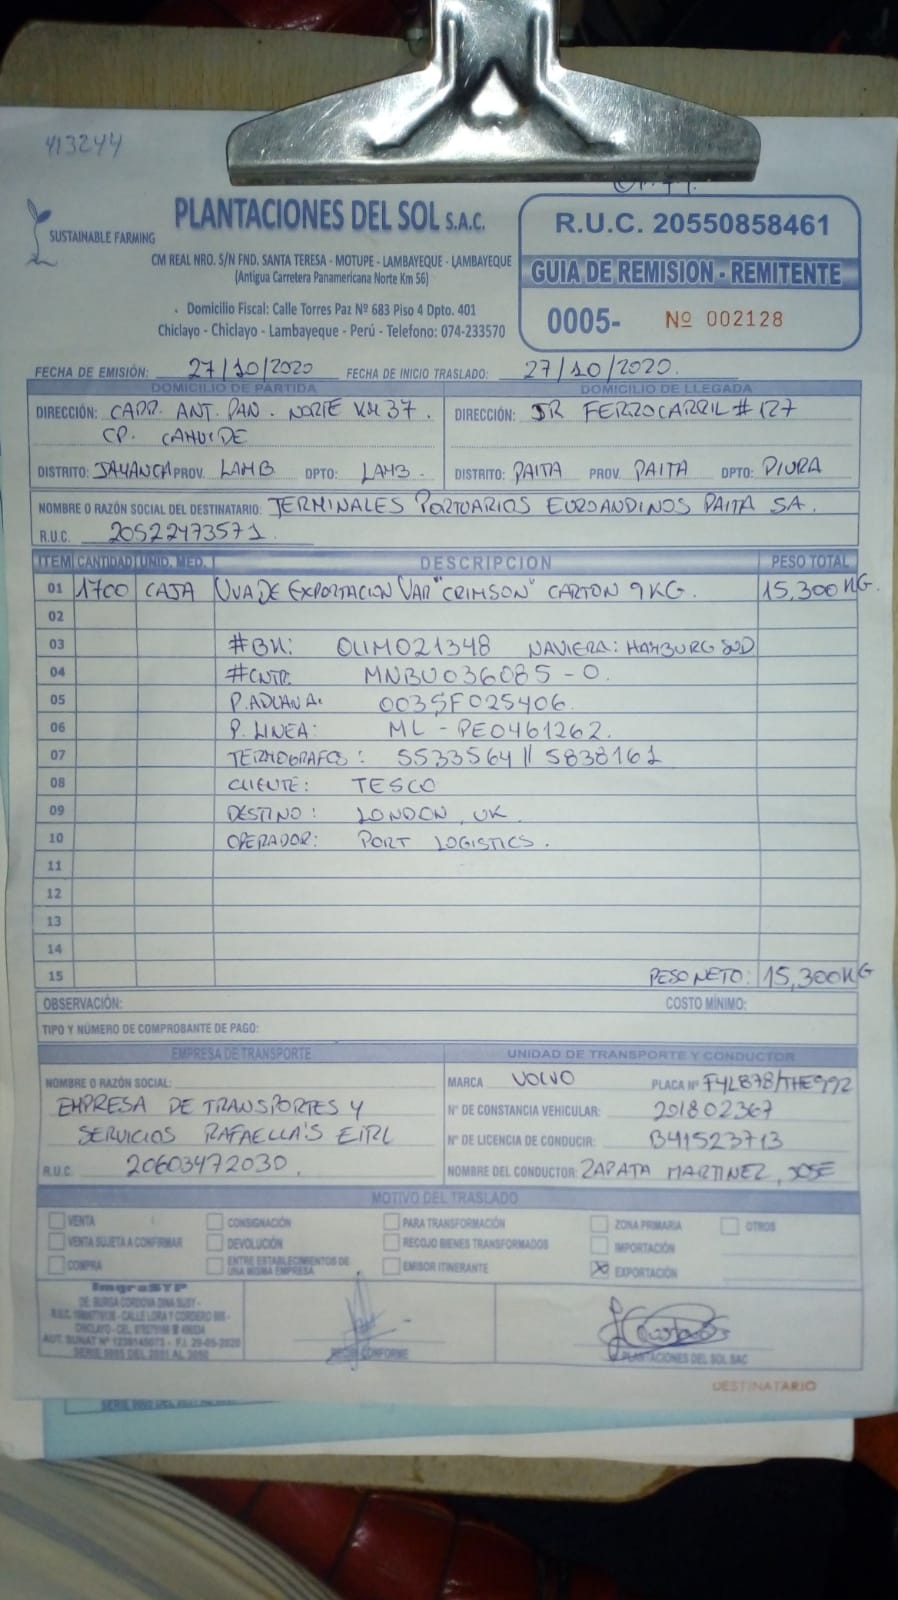 413244
SUSTAINABLE FARMING
PLANTACIONES DEL SOL S.A.C.
CM REAL NRO. S/N FND. SANTA TERESA - MOTUPE - LAMBAYEQUE - LAMBAYEQUE
(Antigua Carretera Panamericana Norte Km 56)
Domicilio Fiscal: Calle Torres Paz Nº 683 Piso 4 Dpto. 401
Chiclayo - Chiclayo - Lambayeque - Perú - Telefono: 074-233570
R.U.C. 20550858461
GUIA DE REMISION - REMITENTE
0005- Nº 002128
FECHA DE EMISIÓN: 27/10/2020 FECHA DE INICIO TRASLADO: 27/10/2020.
DOMICILIO DE PARTIDA
DIRECCIÓN: CARR. ANT. PAN. NORTE KM 37.
CP. CAHUIDE
DISTRITO: JAYANCA PROV. LAMB DPTO: LAMB.
DOMICILIO DE LLEGADA
DIRECCIÓN: JR FERROCARRIL # 127
DISTRITO: PAITA PROV. PAITA DPTO: PIURA
NOMBRE O RAZÓN SOCIAL DEL DESTINATARIO: TERMINALES PORTUARIOS EUROANDINOS PAITA SA.
R.U.C. 20522473571.
ITEM CANTIDAD UNID. MED. DESCRIPCION PESO TOTAL
01 1700 CAJA UVA DE EXPORTACION VAR "CRIMSON" CARTON 9KG. 15,300 KG.
02
03 #BK: OUMO21348 NAVIERA: HAMBURG SUD
04 #CNTR. MNBU036085-0.
05 P. ADUANA: 003SF025406.
06 P. LINEA: ML - PE0461262.
07 TERMOGRAFOS: 5533564 // 5838161
08 CLIENTE: TESCO
09 DESTINO: LONDON, UK.
10 OPERADOR: PORT LOGISTICS.
11
12
13
14
15 PESO NETO: 15,300KG
OBSERVACIÓN: COSTO MÍNIMO:
TIPO Y NÚMERO DE COMPROBANTE DE PAGO:
EMPRESA DE TRANSPORTE
NOMBRE O RAZÓN SOCIAL:
EMPRESA DE TRANSPORTES Y
SERVICIOS RAFAELLA'S EIRL
R.U.C. 20603472030.
UNIDAD DE TRANSPORTE Y CONDUCTOR
MARCA VOLVO PLACA Nº F4L878/THE992
Nº DE CONSTANCIA VEHICULAR: 201802367
Nº DE LICENCIA DE CONDUCIR: B41523713
NOMBRE DEL CONDUCTOR: ZAPATA MARTINEZ, JOSE
MOTIVO DEL TRASLADO
VENTA CONSIGNACIÓN PARA TRANSFORMACIÓN ZONA PRIMARIA OTROS
VENTA SUJETA A CONFIRMAR DEVOLUCIÓN RECOJO BIENES TRANSFORMADOS IMPORTACIÓN
COMPRA ENTRE ESTABLECIMIENTOS DE UNA MISMA EMPRESA EMISOR ITINERANTE X EXPORTACIÓN
ImgraSYP
DE: BURGA CORDOVA DINA SUSY -
CALLE LORA Y CORDERO
CHICLAYO - CEL.
F.I. 29-05-2020
SERIE 0005 DEL 2001 AL 3000
RECIBI CONFORME
PLANTACIONES DEL SOL SAC
DESTINATARIO